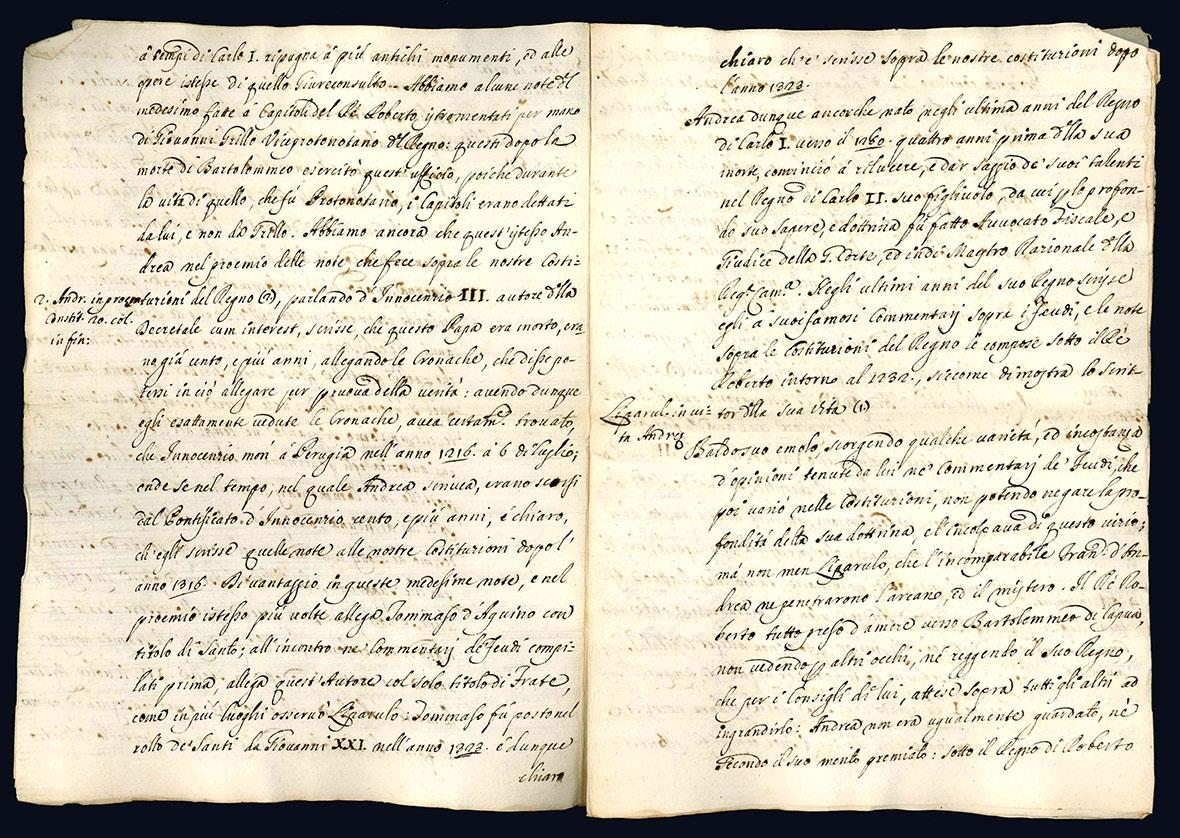 á tempi di Carlo I. ripugna á piú antichi monumenti, ed alle
opere istesse di quello Giureconsulto. Abbiamo alcune note del
medesimo fate á Capitoli del Ré Roberto istromentati per mano
di Giovanni Grillo Viceprotonotano del Regno: questi dopo la
morte di Bartolommeo esercitò quest'ufficio, poiche durante
la vita di quello, che fú Protonotario, i Capitoli erano dettati
da lui, e non da Grillo. Abbiamo ancora che quest'istesso An-
drea nel proemio delle note che fece sopra le nostre Costi-
2. Andr. in proem.
Constit. 20. col.
in fin:
tuzioni del Regno (2), parlando d'Innocenzio III. autore della
Decretale cum interest, scrisse, che questo Papa era morto, era
no giá cento, e piú anni, allegando le Cronache, che disse po-
tersi in ció allegare per pruova della verità: avendo dunque
egli esattamente vedute le Cronache, avea certam.e trovato,
che Innocenzio morí á Perugia nell'anno 1216. á 6 di Luglio;
onde se nel tempo, nel quale Andrea scrivea, erano scorsi
dal Pontificato d'Innocenzio cento, e piú anni, é chiaro,
ch'egli scrisse quelle note alle nostre Costituzioni dopo l'
anno 1316. Di vantaggio in queste medesime note, e nel
proemio istesso piú volte allega Tommaso d'Aquino con
titolo di Santo; all'incontro ne' Commentarj de' Feudi compi-
lati prima, allega quest'Autore col solo titolo di Frate,
come in piú luoghi osservó Liparulo: Tommaso fú posto nel
rollo de' Santi da Giovanni XXI. nell'anno 1323. é dunque
chiaro
chiaro ch'e' scrisse sopra le nostre costituzioni dopo
l'anno 1323.
Andrea dunque ancorche nato negli ultimi anni del Regno
di Carlo I. verso il 1280. quattro anni prima della sua
morte, cominció á rilucere, e dar saggio de' suoi talenti
nel Regno di Carlo II. suo figliuolo, da cui p lo profon-
do suo sapere, e dottrina fú fatto Avvocato Fiscale, e
Giudice della G. Corte, ed indi Mastro Razionale della
Reg.a Cam.a. Negli ultimi anni del suo Regno scrisse
egli á suoi famosi Commentarj sopra i Feudi, e le note
sopra le Costituzioni del Regno le compose sotto il Ré
Roberto intorno al 1232., siccome dimostra lo Scrit-
Liparul. in vi-
ta Andreę
tor della sua vita (1)
Baldo suo emolo, scorgendo qualche varietá, ed incostanza
d'opinioni tenute da lui ne' Commentarj de' Feudi, che
poi varió nelle Costituzioni, non potendo negare la pro-
fonditá della sua dottrina, l'incolpava di questo vizio;
má non men Liparulo, che l'incomparabile Fran.o d'An-
drea ne penetrarono l'arcano, ed il mistero. Il Ré Ro-
berto tutto preso d'amore verso Bartolommeo di Capua,
non vedendo p altri occhi, né reggendo il suo Regno,
che per i Consigli di lui, attese sopra tutti gli altri ad
ingrandirlo: Andrea non era ugualmente guardato, né
secondo il suo merito premiato: sotto il Regno di Roberto